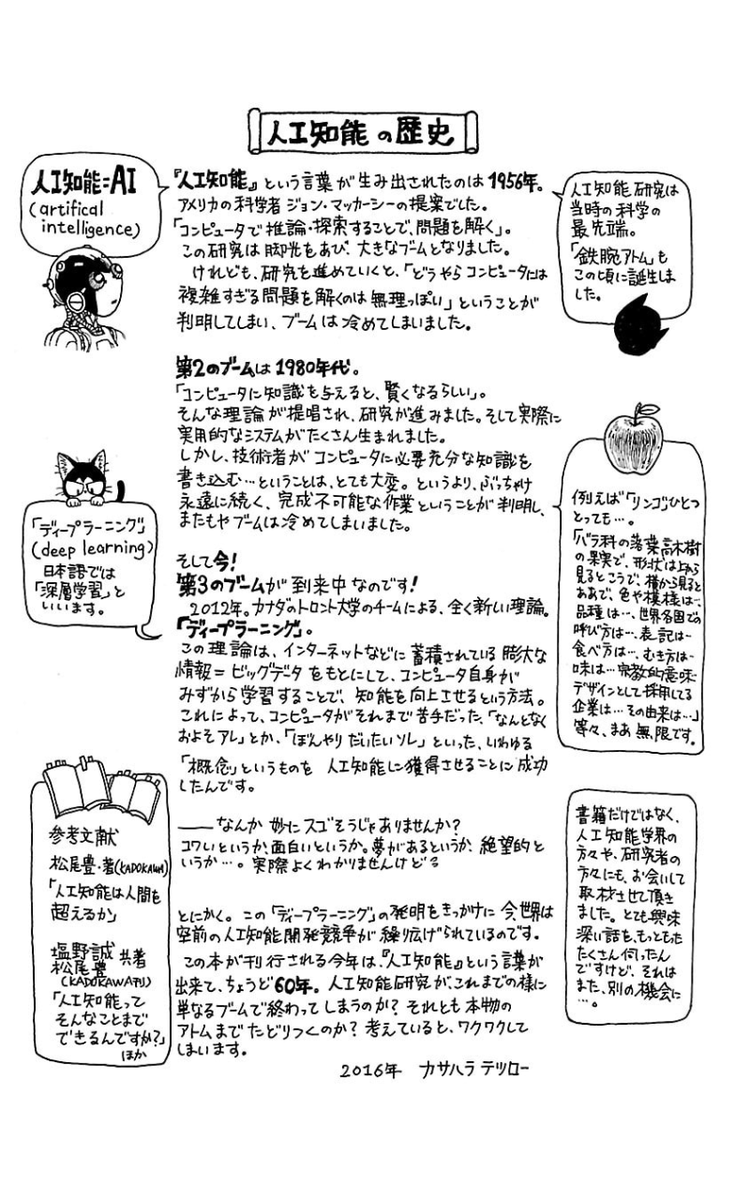 人工知能の歴史
人工知能=AI
(artifical
intelligence)
『人工知能』という言葉が生み出されたのは1956年。
アメリカの科学者ジョン・マッカーシーの提案でした。
「コンピュータで推論・探索することで、問題を解く」。
この研究は脚光をあび、大きなブームとなりました。
けれども、研究を進めていくと、「どうやらコンピュータには
複雑すぎる問題を解くのは無理っぽい」ということが
判明してしまい、ブームは冷めてしまいました。
人工知能研究は
当時の科学の
最先端。
「鉄腕アトム」も
この頃に誕生しま
した。
第2のブームは1980年代。
「コンピュータに知識を与えると、賢くなるらしい」。
そんな理論が提唱され、研究が進みました。そして実際に
実用的なシステムがたくさん生まれました。
しかし、技術者がコンピュータに必要充分な知識を
書き込む…ということは、とても大変。というより、ぶっちゃけ
永遠に続く、完成不可能な作業ということが判明し、
またもやブームは冷めてしまいました。
例えば「リンゴ」ひとつ
とっても…。
「バラ科の落葉高木樹
の果実で、形状は上から
見るとこうで、横から見ると
ああで、色や模様は…
品種は…、世界各国での
呼び方は…、表記は…
食べ方は…、むき方は…
味は…宗教的意味…
デザインとして採用してる
企業は…その由来は…」
等々、まあ無限です。
「ディープラーニング」
(deep learning)
日本語では
「深層学習」と
いいます。
そして今!
第3のブームが到来中なのです!
2012年。カナダのトロント大学のチームによる、全く新しい理論。
「ディープラーニング」。
この理論は、インターネットなどに蓄積されている膨大な
情報=ビッグデータをもとにして、コンピュータ自身が
みずから学習することで、知能を向上させるという方法。
これによって、コンピュータがそれまで苦手だった、「なんとなく
およそアレ」とか、「ぼんやりだいたいソレ」といった、いわゆる
「概念」というものを 人工知能に獲得させることに成功
したんです。
――なんか妙にスゴそうじゃありませんか?
コワいというか、面白いというか。夢があるというか、絶望的と
いうか…。実際よくわかりませんけども
とにかく。この「ディープラーニング」の発明をきっかけに今、世界は
空前の人工知能開発競争が繰り広げられているのです。
この本が刊行される今年は、『人工知能』という言葉が
出来て、ちょうど60年。人工知能研究が、これまでの様に
単なるブームで終わってしまうのか? それとも本物の
アトムまでたどりつくのか? 考えていると、ワクワクして
しまいます。
2016年 カサハラテツロー
参考文献
松尾豊・著(KADOKAWA)
「人工知能は人間を
超えるか」
塩野誠 共著
松尾豊
(KADOKAWA刊)
「人工知能って
そんなことまで
できるんですか?」
ほか
書籍だけではなく、
人工知能学界の
方々や、研究者の
方々にも、お会いして
取材させて頂き
ました。とても興味
深い話を、もっともっと
たくさん伺ったん
ですけど、それは
また、別の機会に
…。